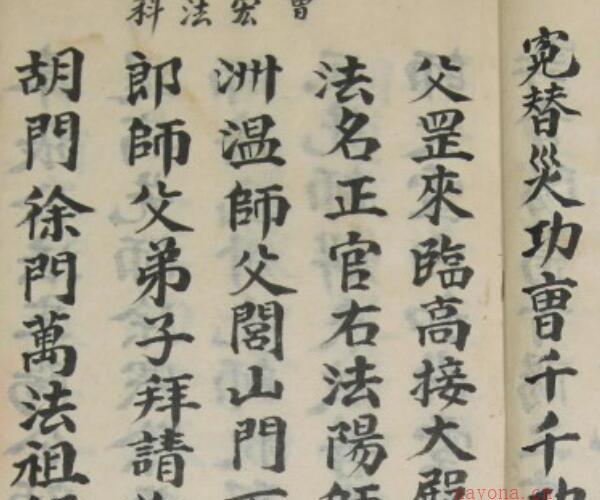 宏法科
寃替災功曹千千功
父罡來臨高接大殿
法名正官右法陽師
洲温師父閭山門
郎師父弟子拜請
胡門徐門萬法祖師